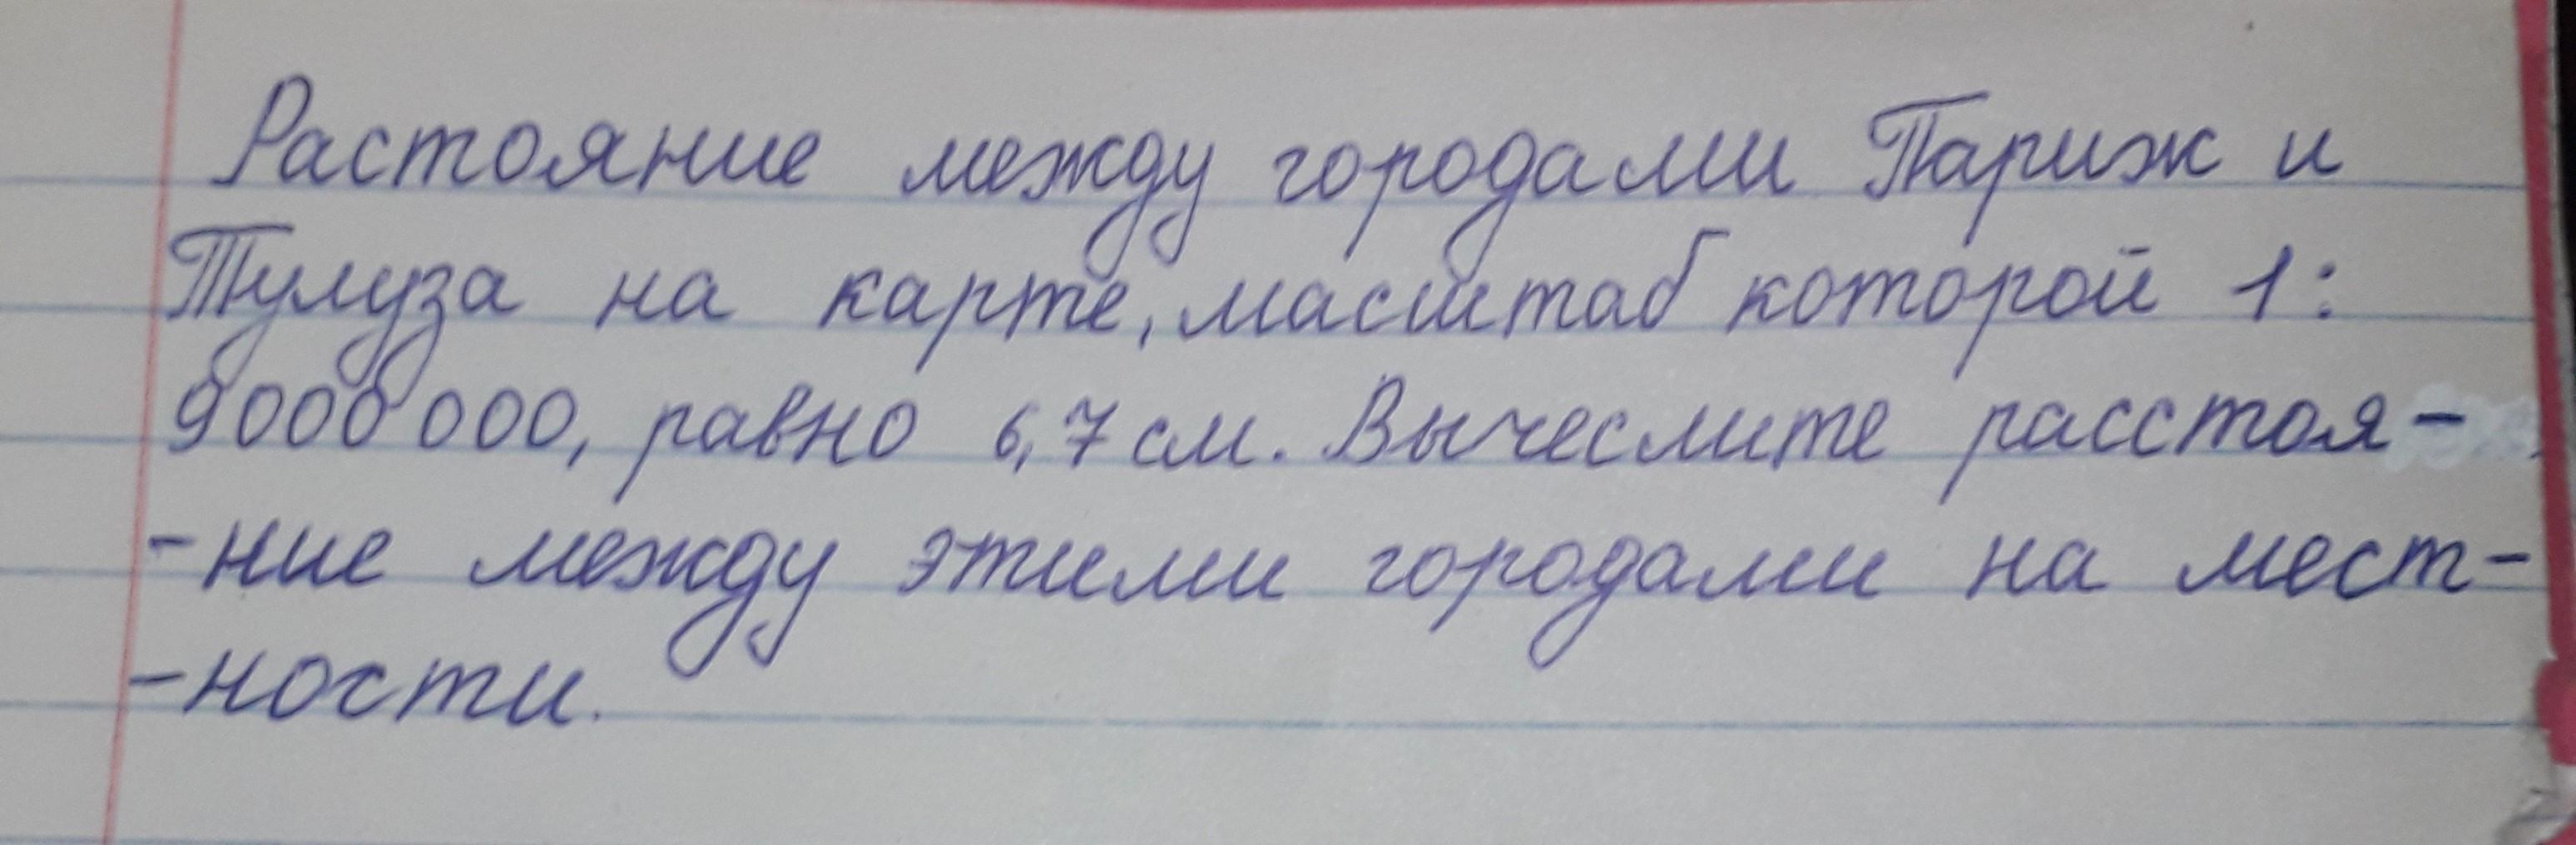 Растояние между городами Париж и
Тулуза на карте, масштаб которой 1:
9000000, равно 6,7 см. Вычеслите расстоя-
-ние между этими городами на мест-
-ности.